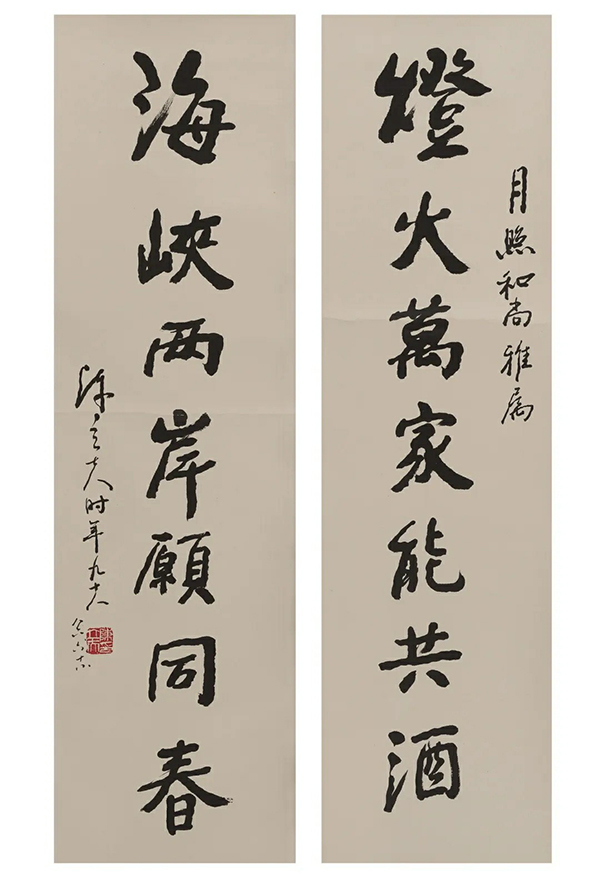 月照和尚雅属
燈火萬家能共酒
海峽两岸願同春
陳立夫时年九十八